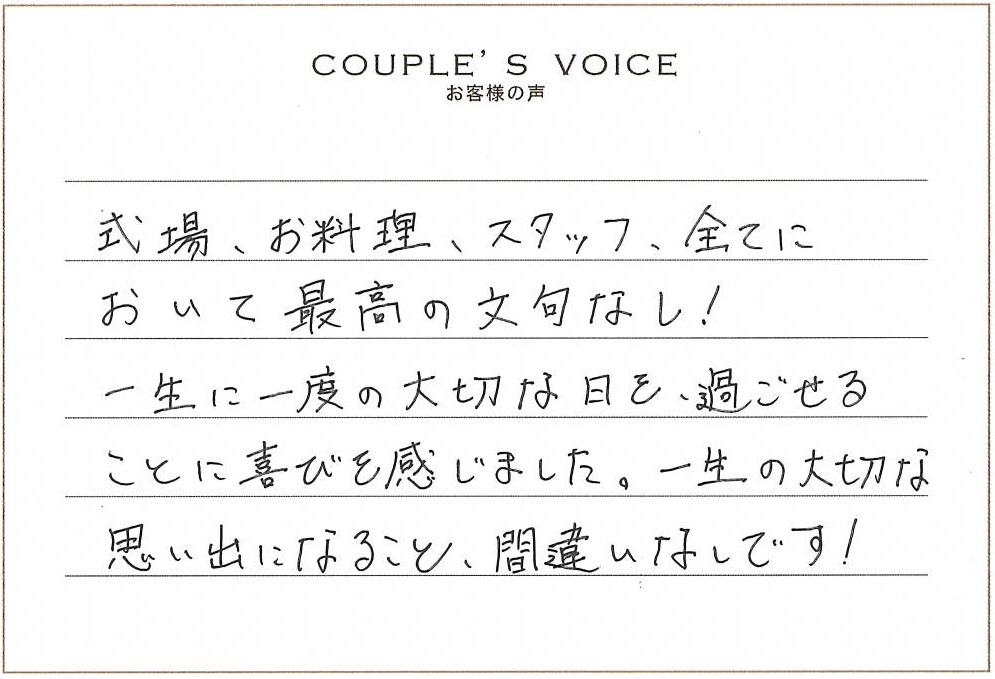 COUPLE'S VOICE
お客様の声
式場、お料理、スタッフ、全てに
おいて最高の文句なし!
一生に一度の大切な日を、過ごせる
ことに喜びを感じました。一生の大切な
思い出になること、間違いなしです!